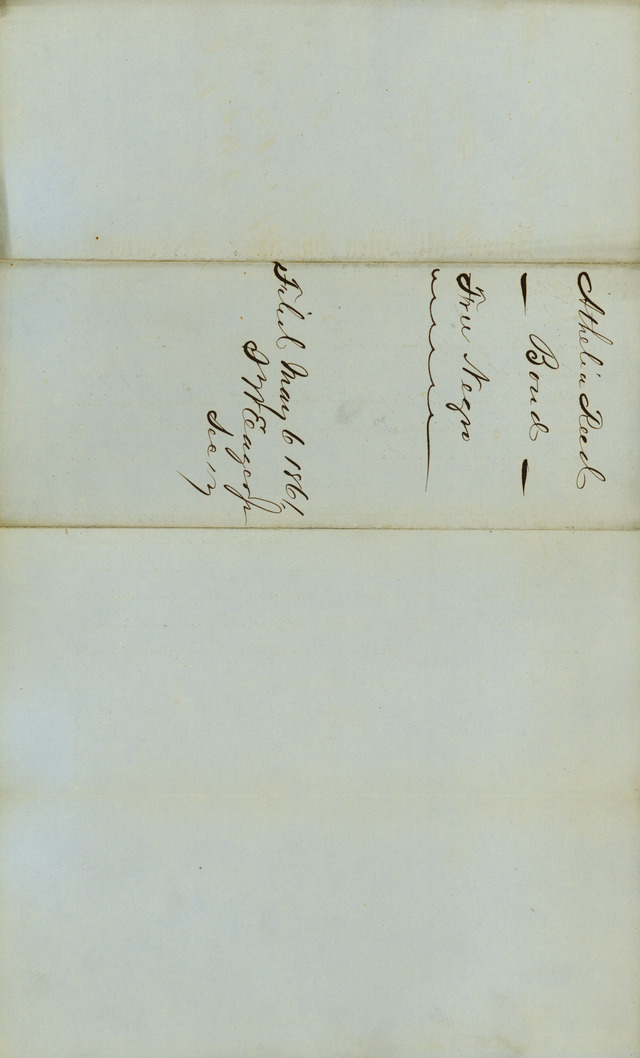 Athelia Reed
— Bond —
Free Negro
Filed May 6 1861